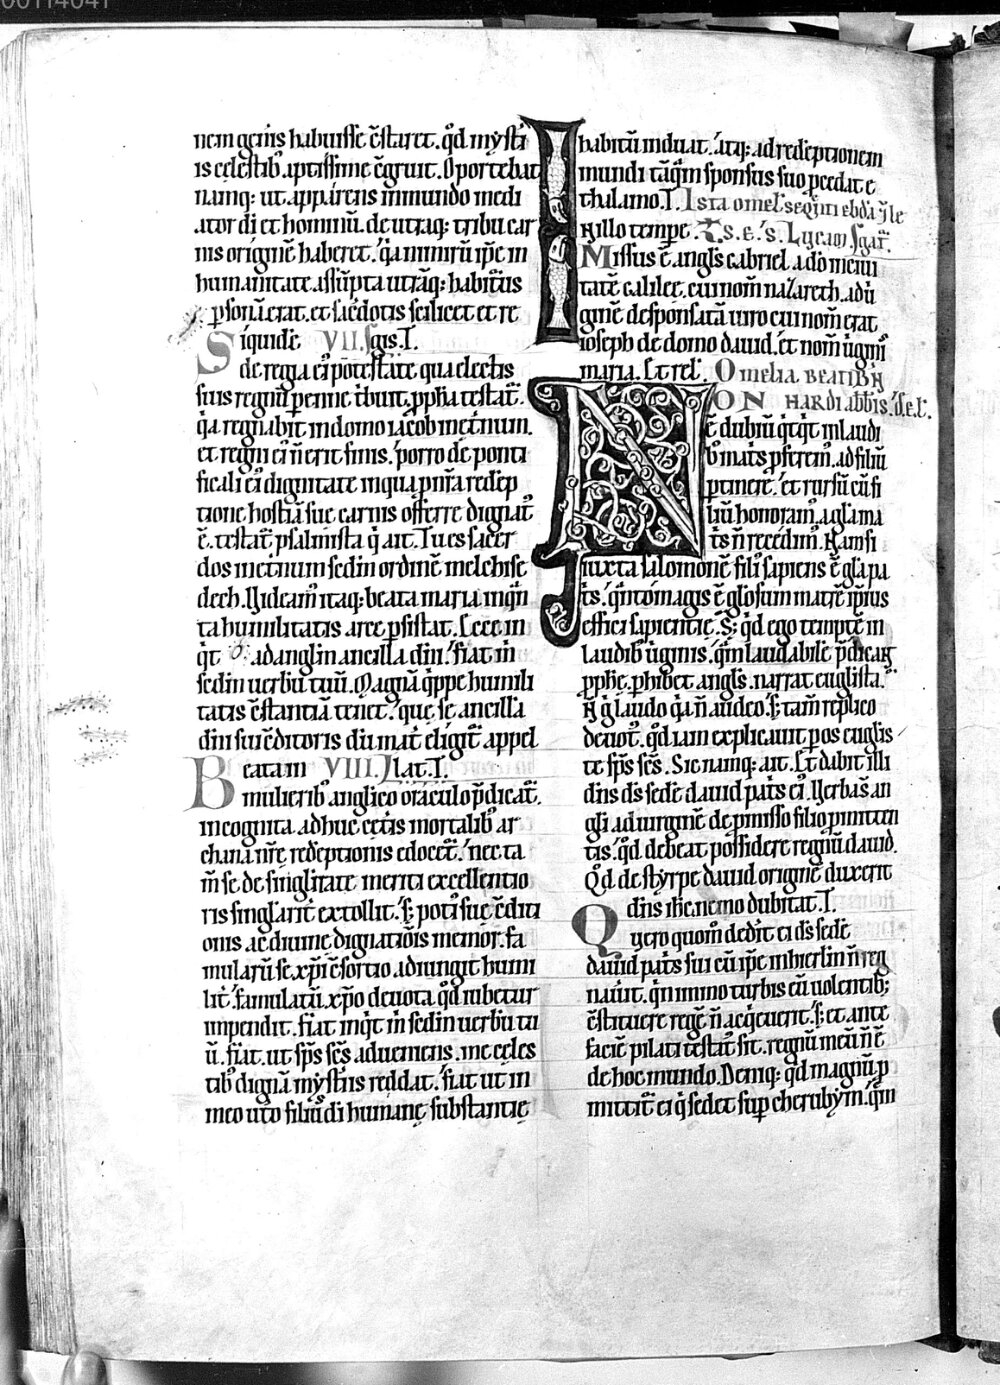 00114041
nem generis habuisse c̄staret. qđ mẏsti
is celestibꝰ aptissime c̄gruit. Oportebat
namq; ut apparens in mundo medi
ator di et hominū. de utraq; tribu car
nis originē haberet. q̓a nimirū ip̄e in
humanitate assūpta utrāq; habit̓us
ꝑsonā erat. et sac̓dotis scilicet et re
Siquidē VII. gis. T.
de regia ei potestate qua electis
suis regnū ꝑenne t̓buit. ꝓph̓a testat᷑.
q̓a regnabit in domo iacob in et̓num.
et regni ei n̄ erit finis. porro de ponti
ficali ei dignitate in qua ꝓ nr̄a redēp
tione hostiā sue carnis offerre dignat᷑
ē. testat᷑ psalmista q̓ ait. Tu es sacer
dos in et̓num sc̄din ordinē melchise
dech. Videam̓ itaq; beata maria in q̓n
ta humilitatis arce ꝑsistat. Ecce in
q̓t ad anglm̄ ancilla dn̄i. fiat m̄
sc̄din uerbū tuū. Magnā q̓ppe humili
tatis c̄stantiā tenet. que se ancillā
dn̄i sui c̄ditoris dū mat̓ eligit᷑ appel
Beatam VIII. lat. T.
mulieribꝰ anglico oraculo p̄dicat᷑.
incognita adhuc cet̓is mortalibꝰ ar
chana nr̄e redēptionis edocet᷑. nec ta
m̄ se de singl̓itate meriti excellentio
ris singl̓arit̓ extollit. s; poti̓ sue c̄diti
onis ac diuine dignatiōis memor. fa
mularū se xp̄i c̄sortio adiungit humi
lit̓. famulatū xp̄o deuota qđ iubetur
impendit. fiat inq̓t m̄ sc̄din uerbū tu
ū. fiat. ut sp̄s sc̄s adueniens. me celes
tibꝰ dignā mẏst̓iis reddat. fiat ut in
meo ut̓o filiꝰ di humanę substantię
habitū induat. atq; ad redēptionem
mundi tāq̓m sponsus suo ꝓcedat e
thalamo. T. Ista omel̓
Millo tempe. s. Lucam
Missus ē angls̄ gabriel a dō in ciui
tatē galilee. cui nom̄ nazareth. ad ū
ginē desponsatā uiro cui nom̄ erat
ioseph de domo dauid. et nom̄ ūginis
maria. Et rel. Omelia. BEATI BN
ON HARDI abbis. d. e. l.
ē dubiū q̓cq̓t in laudi
bꝰ mat̓s ꝓferim̓. ad filiū
ꝑtinere. et rursū cū fi
liū honoram̓. a gl̓a ma
t̓s n̄ recedim̓. Nam si
iuxta salomonē fili̓ sapiens ē gl̓a pa
t̓s. q̓nto magis ē gl̓osum matrē ip̄ius
effici sapientie. S; qđ ego temptē in
laudibꝰ ūginis. q̓m laudabilē p̄dicant
ꝓph̓e. ꝑhibet angls̄. narrat euglista.
N̄ q̓ laudo q̓a n̄ audeo. s; tam̄ replico
deuot̓. qđ iam explicauit ꝑ os euglis
te sp̄s sc̄s. Sic namq; ait. Et dabit illi
dn̄s ds̄ sedē dauid pat̓s ei. Verba s̄ an
gli ad uirginē de ꝓmisso filio ꝓmitten
tis. qđ debeat possidere regnū dauid.
Qđ de stẏrpe dauid originē duxerit
dn̄s ihc. nemo dubitat. T.
Quero quom̄ dedit ei ds̄ sedē
dauid pat̓s sui cū ip̄e in hierlm̄ n̄ reg
nauit. q̓n immo turbis eū uolentibꝰ
c̄stituere regē n̄ acq̓euerit. s; et ante
faciē pilati testat᷑ sit. regnū meū n̄ ē
de hoc mundo. Deniq; qđ magnū ꝓ
mittit᷑ ei q̓ sedet sup̄ cherubẏm. q̓m